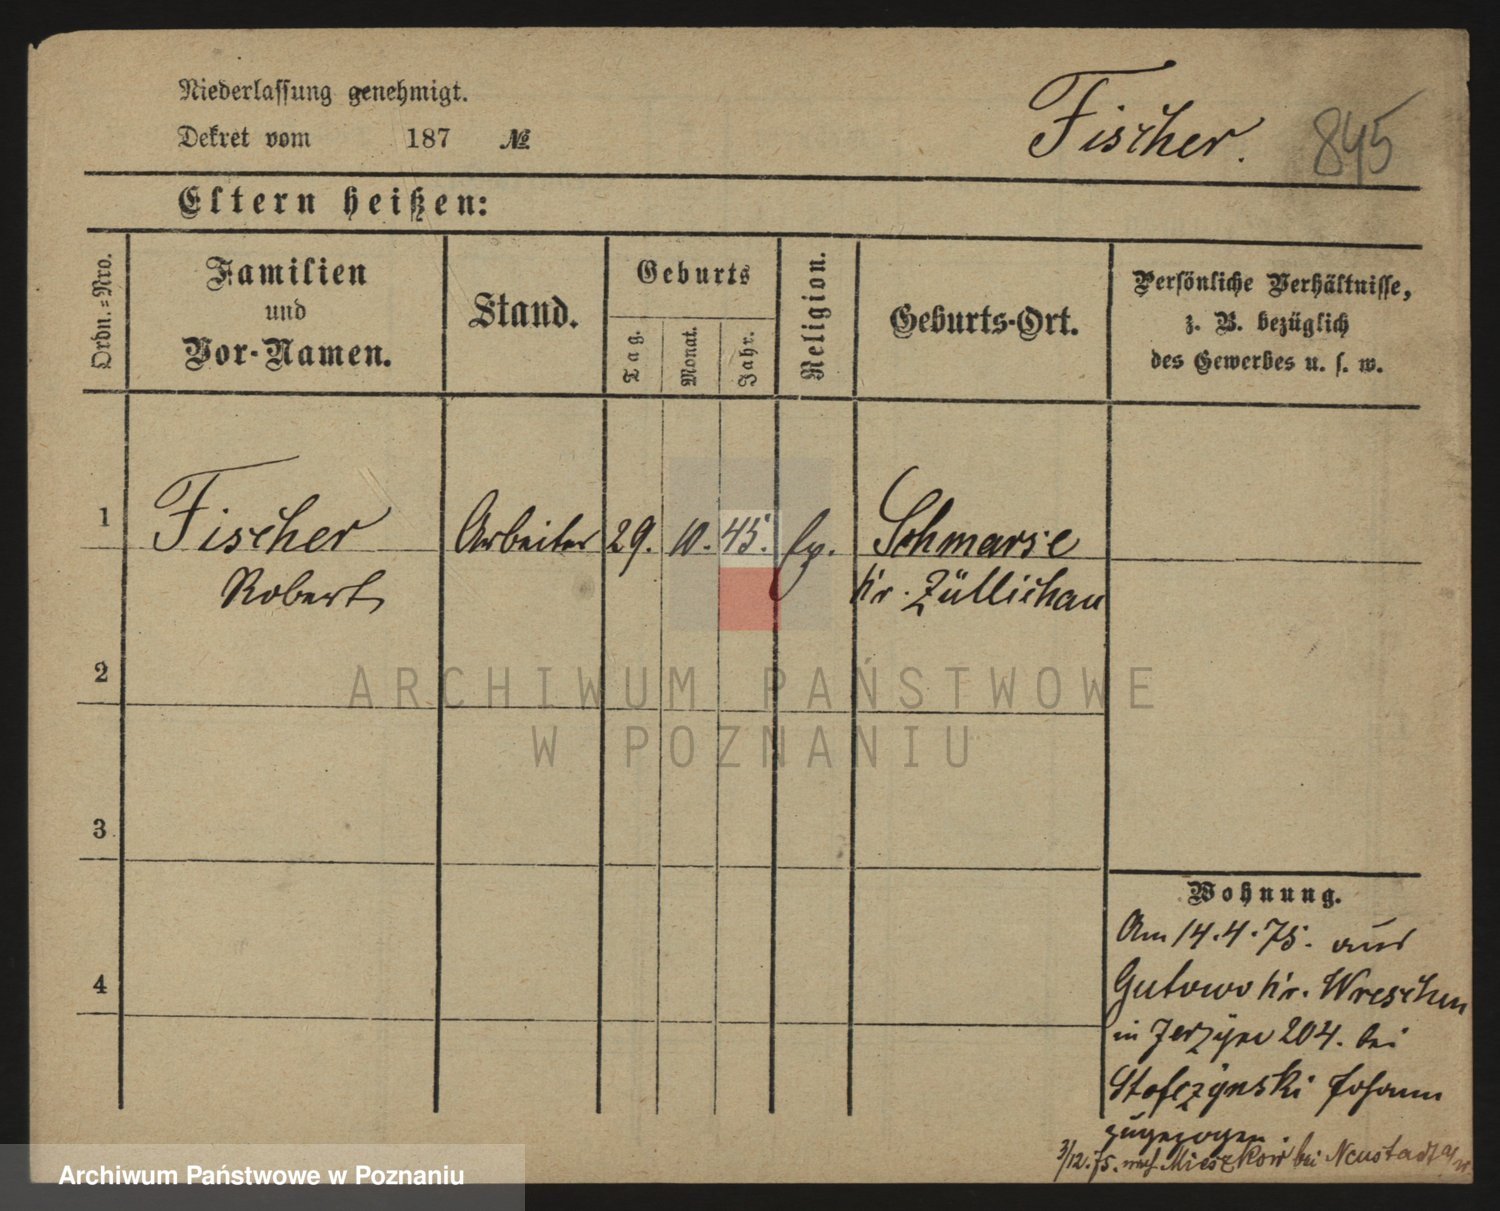 Niederlassung genehmigt.
Dekret vom 187 №
Fischer. 845
Eltern heißen:
Ordn.=Nro.
Familien
und
Vor-Namen.
Stand.
Geburts
Tag.
Monat.
Jahr.
Religion.
Geburts-Ort.
Persönliche Verhältnisse,
z. B. bezüglich
des Gewerbes u. s. w.
1 Fischer Arbeiter 29. 10. 45. Schmarse
Robert Kr. Züllichau
2
3
4
Wohnung.
Am 14.4.75. aus
Gutowo Kr. Wreschen
in Jerzyce 204. bei
Johann
zugezogen.
3/12.75. nach Mieszkow bei Neustadt a/W.
ARCHIWUM PAŃSTWOWE
W POZNANIU
Archiwum Państwowe w Poznaniu